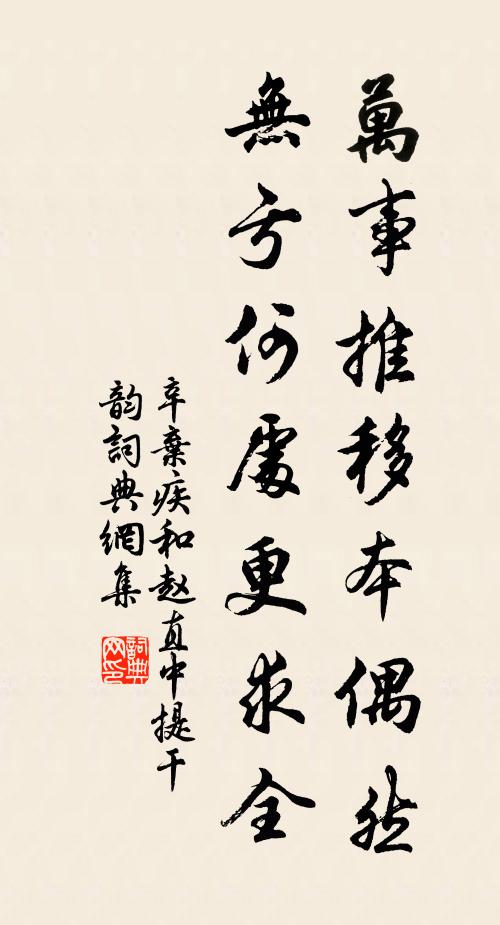 萬事推移本偶然
無亏何處更求全
辛棄疾和赵直中提干
韵詞典網集
詞典網印